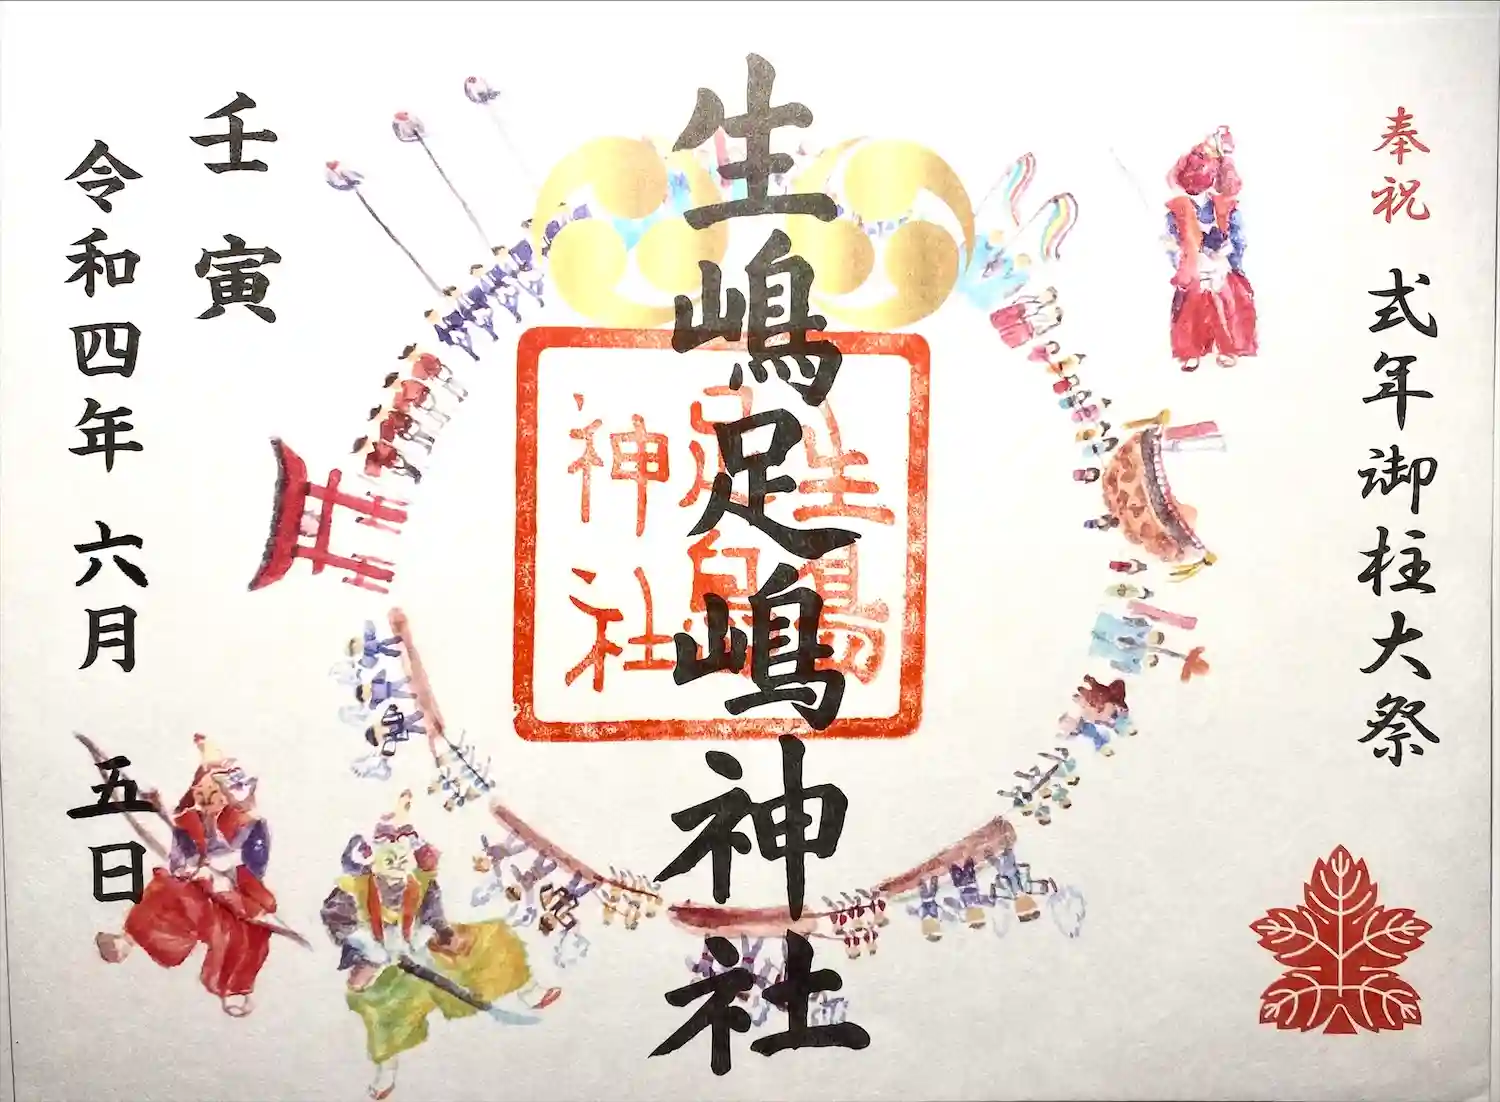 奉祝 式年御柱大祭
生嶋足嶋神社
生島足島神社
壬寅
令和四年 六月 五日